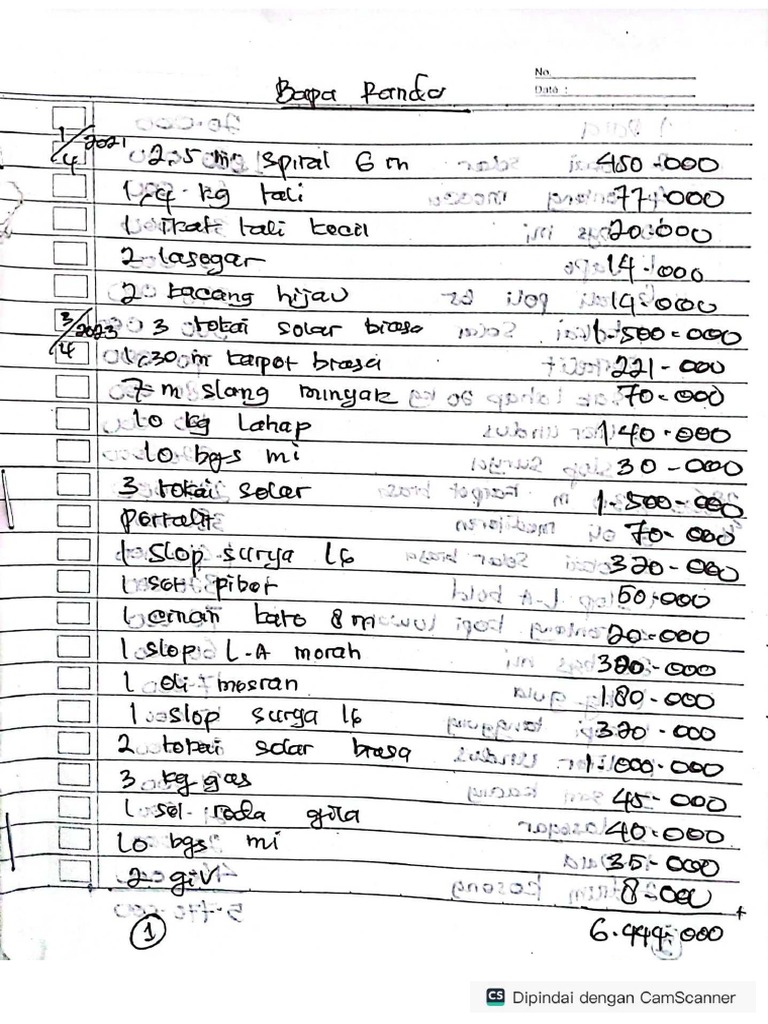 No.
Date :
Bapa Randa
1/4 2021 2,5 m spiral 6 m 450.000
1,4 kg tali 77.000
1 ikat tali kecil 20.000
2 lasegar 14.000
2 kacang hijau 14.000
3/4 2023 3 tokai solar biasa 1.500.000
1,30 m karpot biasa 221-000
7 m slang minyak 70.000
10 kg Lahap 140.000
10 bgs mi 30-000
3 tokai solar 1.500-000
pertalit 70-000
1 Slop surya 16 320-000
1 set pibor 50.000
1 kato 8 20.000
1 slop L-A merah 320-000
1 oli mesran 180-000
1 slop surya 16 320-000
2 tokai solar biasa 1.000.000
3 kg gas 45-000
1 sel roda gila 40.000
10 bgs mi 35-000
2 givi 8-000
1 6.444.000
CS Dipindai dengan CamScanner